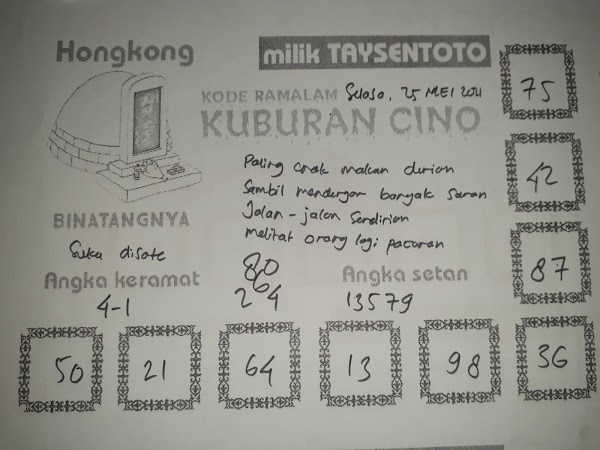 Hongkong
milik TAYSENTOTO
KODE RAMALAM Selasa, 25 MEI 2021
KUBURAN CINO
75
Paling enak makan durian
Sambil mendengar banyak saran
Jalan-jalan sendirian
melihat orang lagi pacaran
42
BINATANGNYA
Suka disate
Angka keramat
4-1
80
6
2 4
Angka setan
13579
87
50 21 64 13 98 36